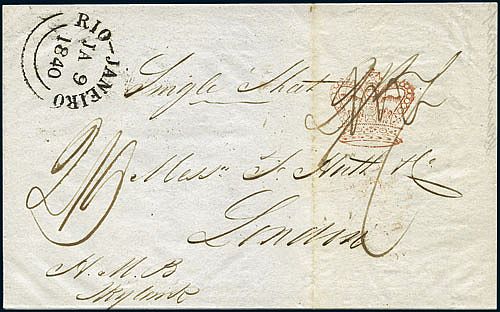 RIO-JANEIRO
JA 9
1840
Single Sheet
2/6
Messrs F. Huth & Co
London
H. M. B